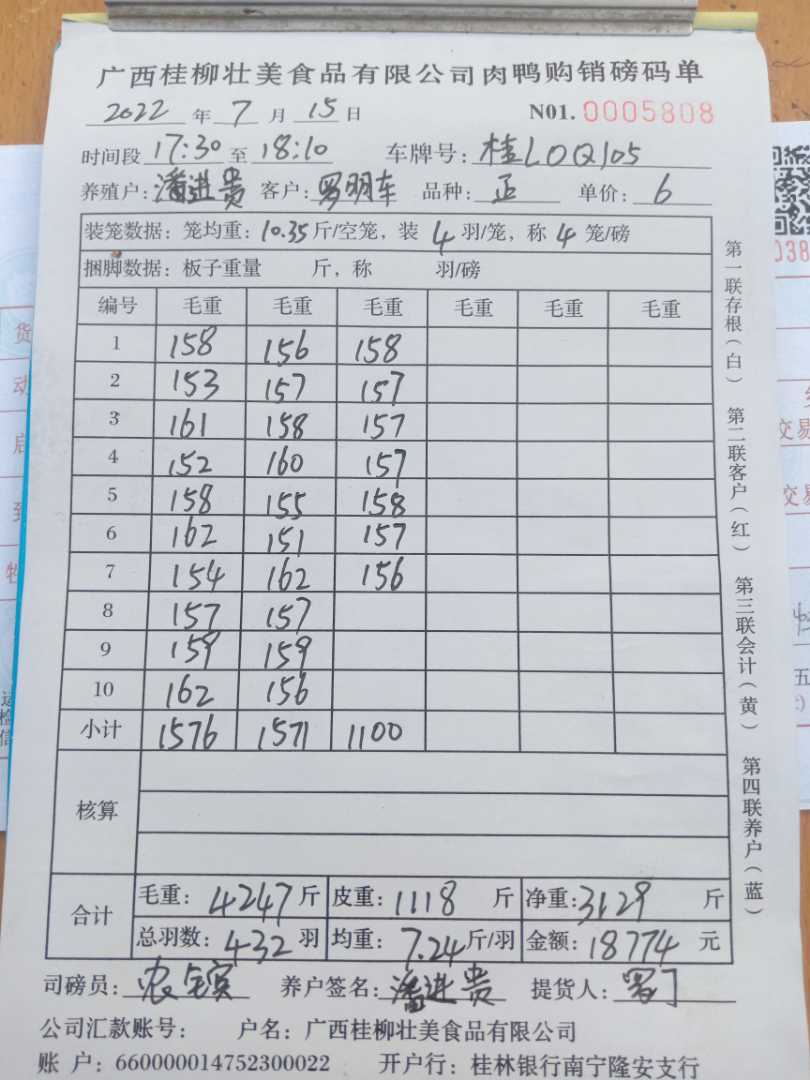 广西桂柳壮美食品有限公司肉鸭购销磅码单
2022 年 7 月 15 日 N01. 0005808
时间段 17:30 至 18:10 车牌号: 桂L0Q105
养殖户: 潘进贵 客户: 罗明车 品种: 正 单价: 6
装笼数据: 笼均重: 10.35 斤/空笼, 装 4 羽/笼, 称 4 笼/磅
捆脚数据: 板子重量 斤, 称 羽/磅
编号 毛重 毛重 毛重 毛重 毛重 毛重
1 158 156 158
2 153 157 157
3 161 158 157
4 152 160 157
5 158 155 158
6 162 151 157
7 154 162 156
8 157 157
9 159 159
10 162 156
小计 1576 1571 1100
核算
合计
毛重: 4247 斤 皮重: 1118 斤 净重: 3129 斤
总羽数: 432 羽 均重: 7.24 斤/羽 金额: 18774 元
司磅员: 养户签名: 潘进贵 提货人:
公司汇款账号: 户名: 广西桂柳壮美食品有限公司
账 户: 660000014752300022 开户行: 桂林银行南宁隆安支行
第一联存根(白) 第二联客户(红) 第三联会计(黄) 第四联养户(蓝)
货
动
启
到
牲
交易
交易
038
五